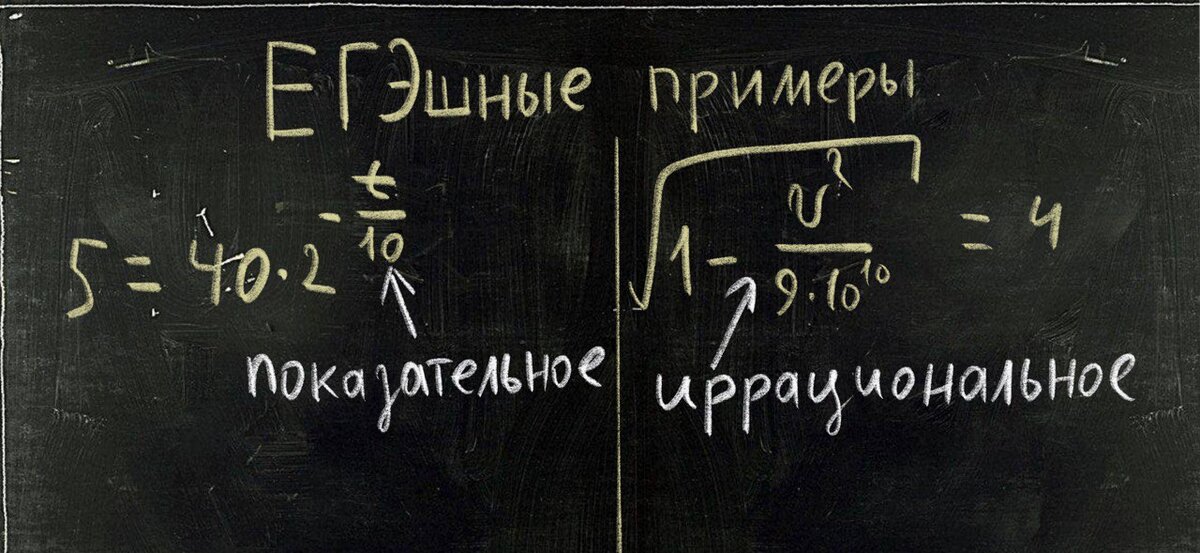 ЕГЭшные примеры
5 = 40·2^(-t/10)
показательное
√(1 - v²/(9·10¹⁰)) = 4
иррациональное